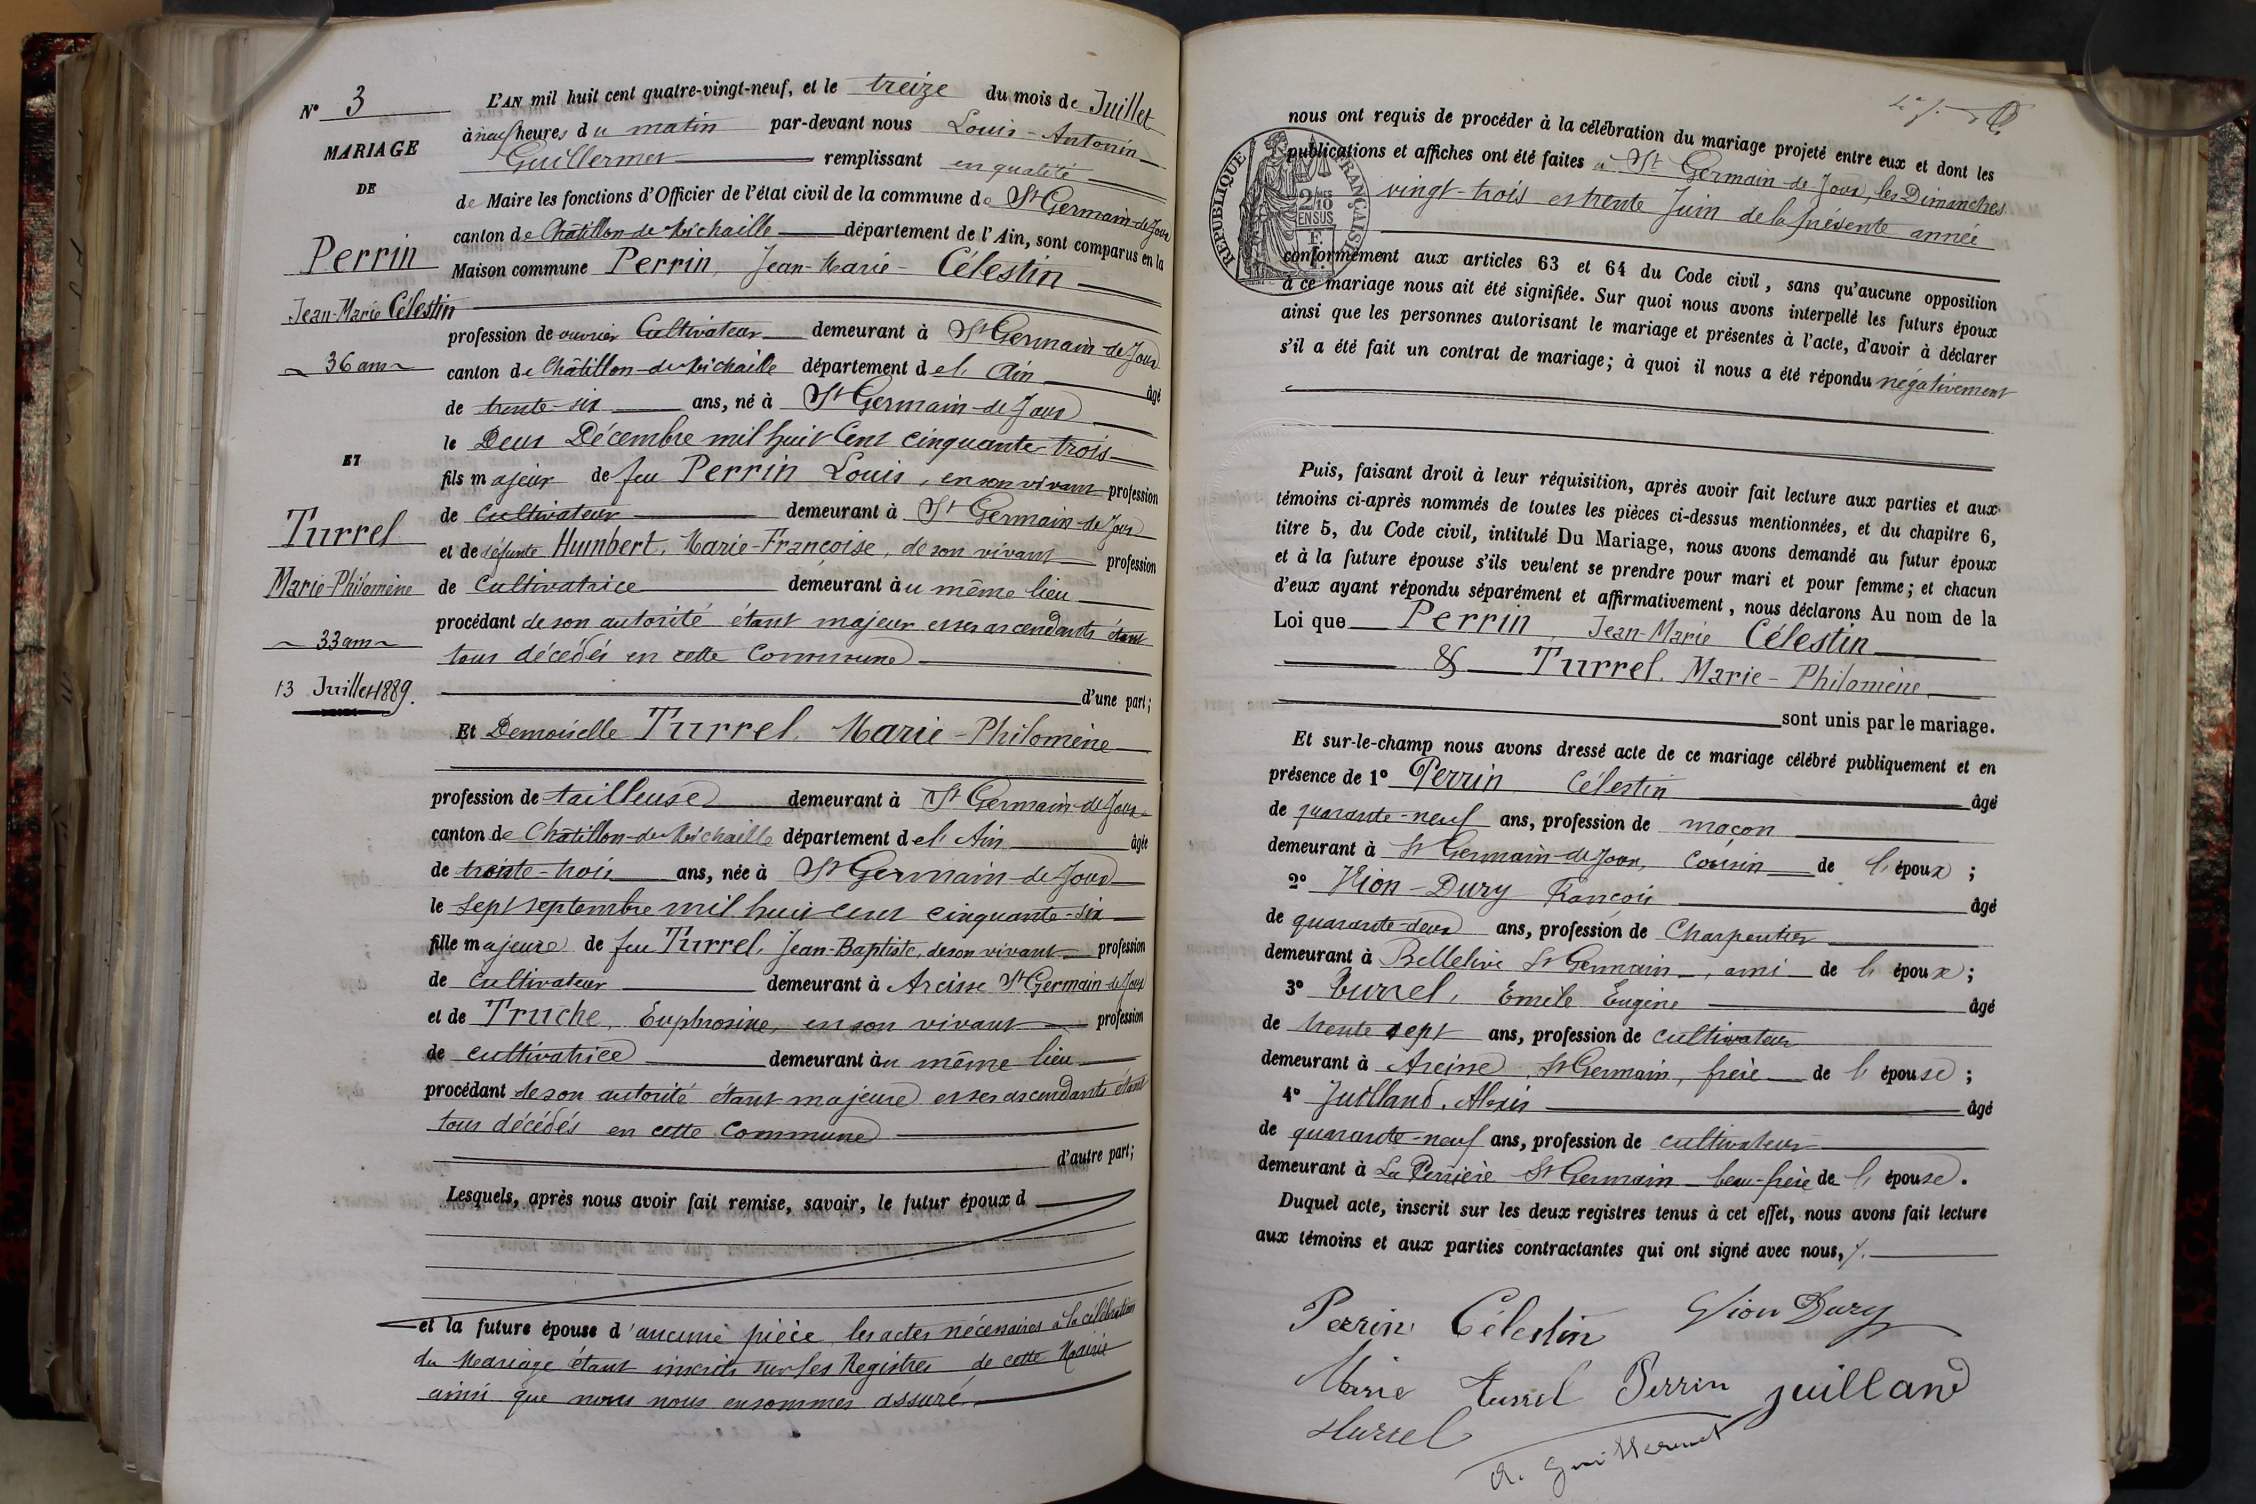 N° 3
MARIAGE
DE
Perrin
Jean-Marie Célestin
36 ans
ET
Turrel
Marie-Philomène
33 ans
13 Juillet 1889.
L'AN mil huit cent quatre-vingt-neuf, et le treize du mois de Juillet
à neuf heures du matin par-devant nous Louis-Antonin
Guillermet remplissant en qualité
de Maire les fonctions d'Officier de l'état civil de la commune de St Germain-de-Joux
canton de Châtillon-de-Michaille département de l'Ain, sont comparus en la
Maison commune Perrin, Jean-Marie-Célestin
profession de ouvrier Cultivateur demeurant à St Germain-de-Joux
canton de Châtillon-de-Michaille département de l'Ain âgé
de trente-six ans, né à St Germain-de-Joux
le Deux Décembre mil huit Cent cinquante-trois
fils majeur de feu Perrin Louis, en son vivant profession
de cultivateur demeurant à St Germain-de-Joux
et de défunte Humbert, Marie-Françoise, de son vivant profession
de Cultivatrice demeurant au même lieu
procédant de son autorité étant majeur et ses ascendants étant
tous décédés en cette Commune
d'une part;
Et Demoiselle Turrel, Marie-Philomène
profession de tailleuse demeurant à St Germain-de-Joux
canton de Châtillon-de-Michaille département de l'Ain âgée
de trente-trois ans, née à St Germain-de-Joux
le sept septembre mil huit cent cinquante-six
fille majeure de feu Turrel, Jean-Baptiste, de son vivant profession
de cultivateur demeurant à Arcisse St Germain-de-Joux
et de Truche, Euphrosine, en son vivant profession
de cultivatrice demeurant au même lieu
procédant de son autorité étant majeure et ses ascendants étant
tous décédés en cette Commune
d'autre part;
Lesquels, après nous avoir fait remise, savoir, le futur époux d
et la future épouse d'aucune pièce, les actes nécessaires à la célébration
du Mariage étant inscrits sur les Registres de cette Mairie
ainsi que nous nous en sommes assuré.
nous ont requis de procéder à la célébration du mariage projeté entre eux et dont les
publications et affiches ont été faites à St Germain-de-Joux, les Dimanches
vingt-trois et trente Juin de la présente année
RÉPUBLIQUE FRANÇAISE
2/10 EN SUS
conformément aux articles 63 et 64 du Code civil, sans qu'aucune opposition
à ce mariage nous ait été signifiée. Sur quoi nous avons interpellé les futurs époux
ainsi que les personnes autorisant le mariage et présentes à l'acte, d'avoir à déclarer
s'il a été fait un contrat de mariage; à quoi il nous a été répondu négativement
Puis, faisant droit à leur réquisition, après avoir fait lecture aux parties et aux
témoins ci-après nommés de toutes les pièces ci-dessus mentionnées, et du chapitre 6,
titre 5, du Code civil, intitulé Du Mariage, nous avons demandé au futur époux
et à la future épouse s'ils veulent se prendre pour mari et pour femme; et chacun
d'eux ayant répondu séparément et affirmativement, nous déclarons Au nom de la
Loi que Perrin, Jean-Marie Célestin
& Turrel, Marie-Philomène
sont unis par le mariage.
Et sur-le-champ nous avons dressé acte de ce mariage célébré publiquement et en
présence de 1° Perrin Célestin âgé
de quarante-neuf ans, profession de maçon
demeurant à St Germain-de-Joux, cousin de l'époux;
2° Vion-Dury François âgé
de quarante-deux ans, profession de Charpentier
demeurant à Bellerive St Germain, ami de l'époux;
3° Turrel, Emile Eugène âgé
de trente sept ans, profession de cultivateur
demeurant à Arcisse, St Germain, frère de l'épouse;
4° Juilland, Alexis âgé
de quarante-neuf ans, profession de cultivateur
demeurant à La Perrière St Germain beau-frère de l'épouse.
Duquel acte, inscrit sur les deux registres tenus à cet effet, nous avons fait lecture
aux témoins et aux parties contractantes qui ont signé avec nous,
Perrin Célestin Vion Dury
Marie Turrel Perrin juilland
Turrel
A. Guillermet